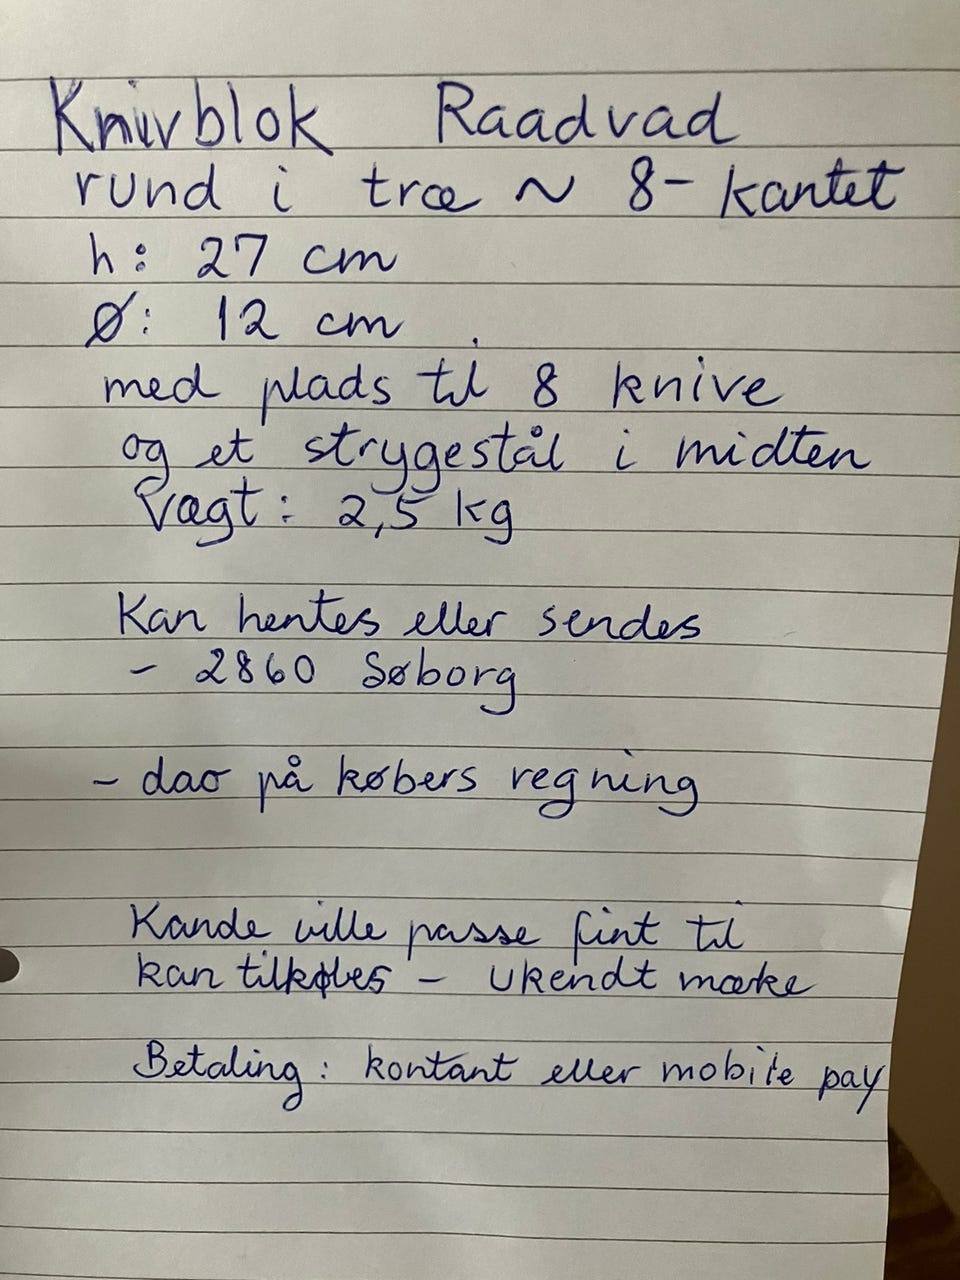 Knivblok Raadvad
rund i træ ~ 8-kantet
h: 27 cm
Ø: 12 cm
med plads til 8 knive
og et strygestål i midten
Vægt: 2,5 kg
Kan hentes eller sendes
- 2860 Søborg
- dao på købers regning
Kande ville passe fint til
kan tilkøbes - ukendt mærke
Betaling: kontant eller mobile pay